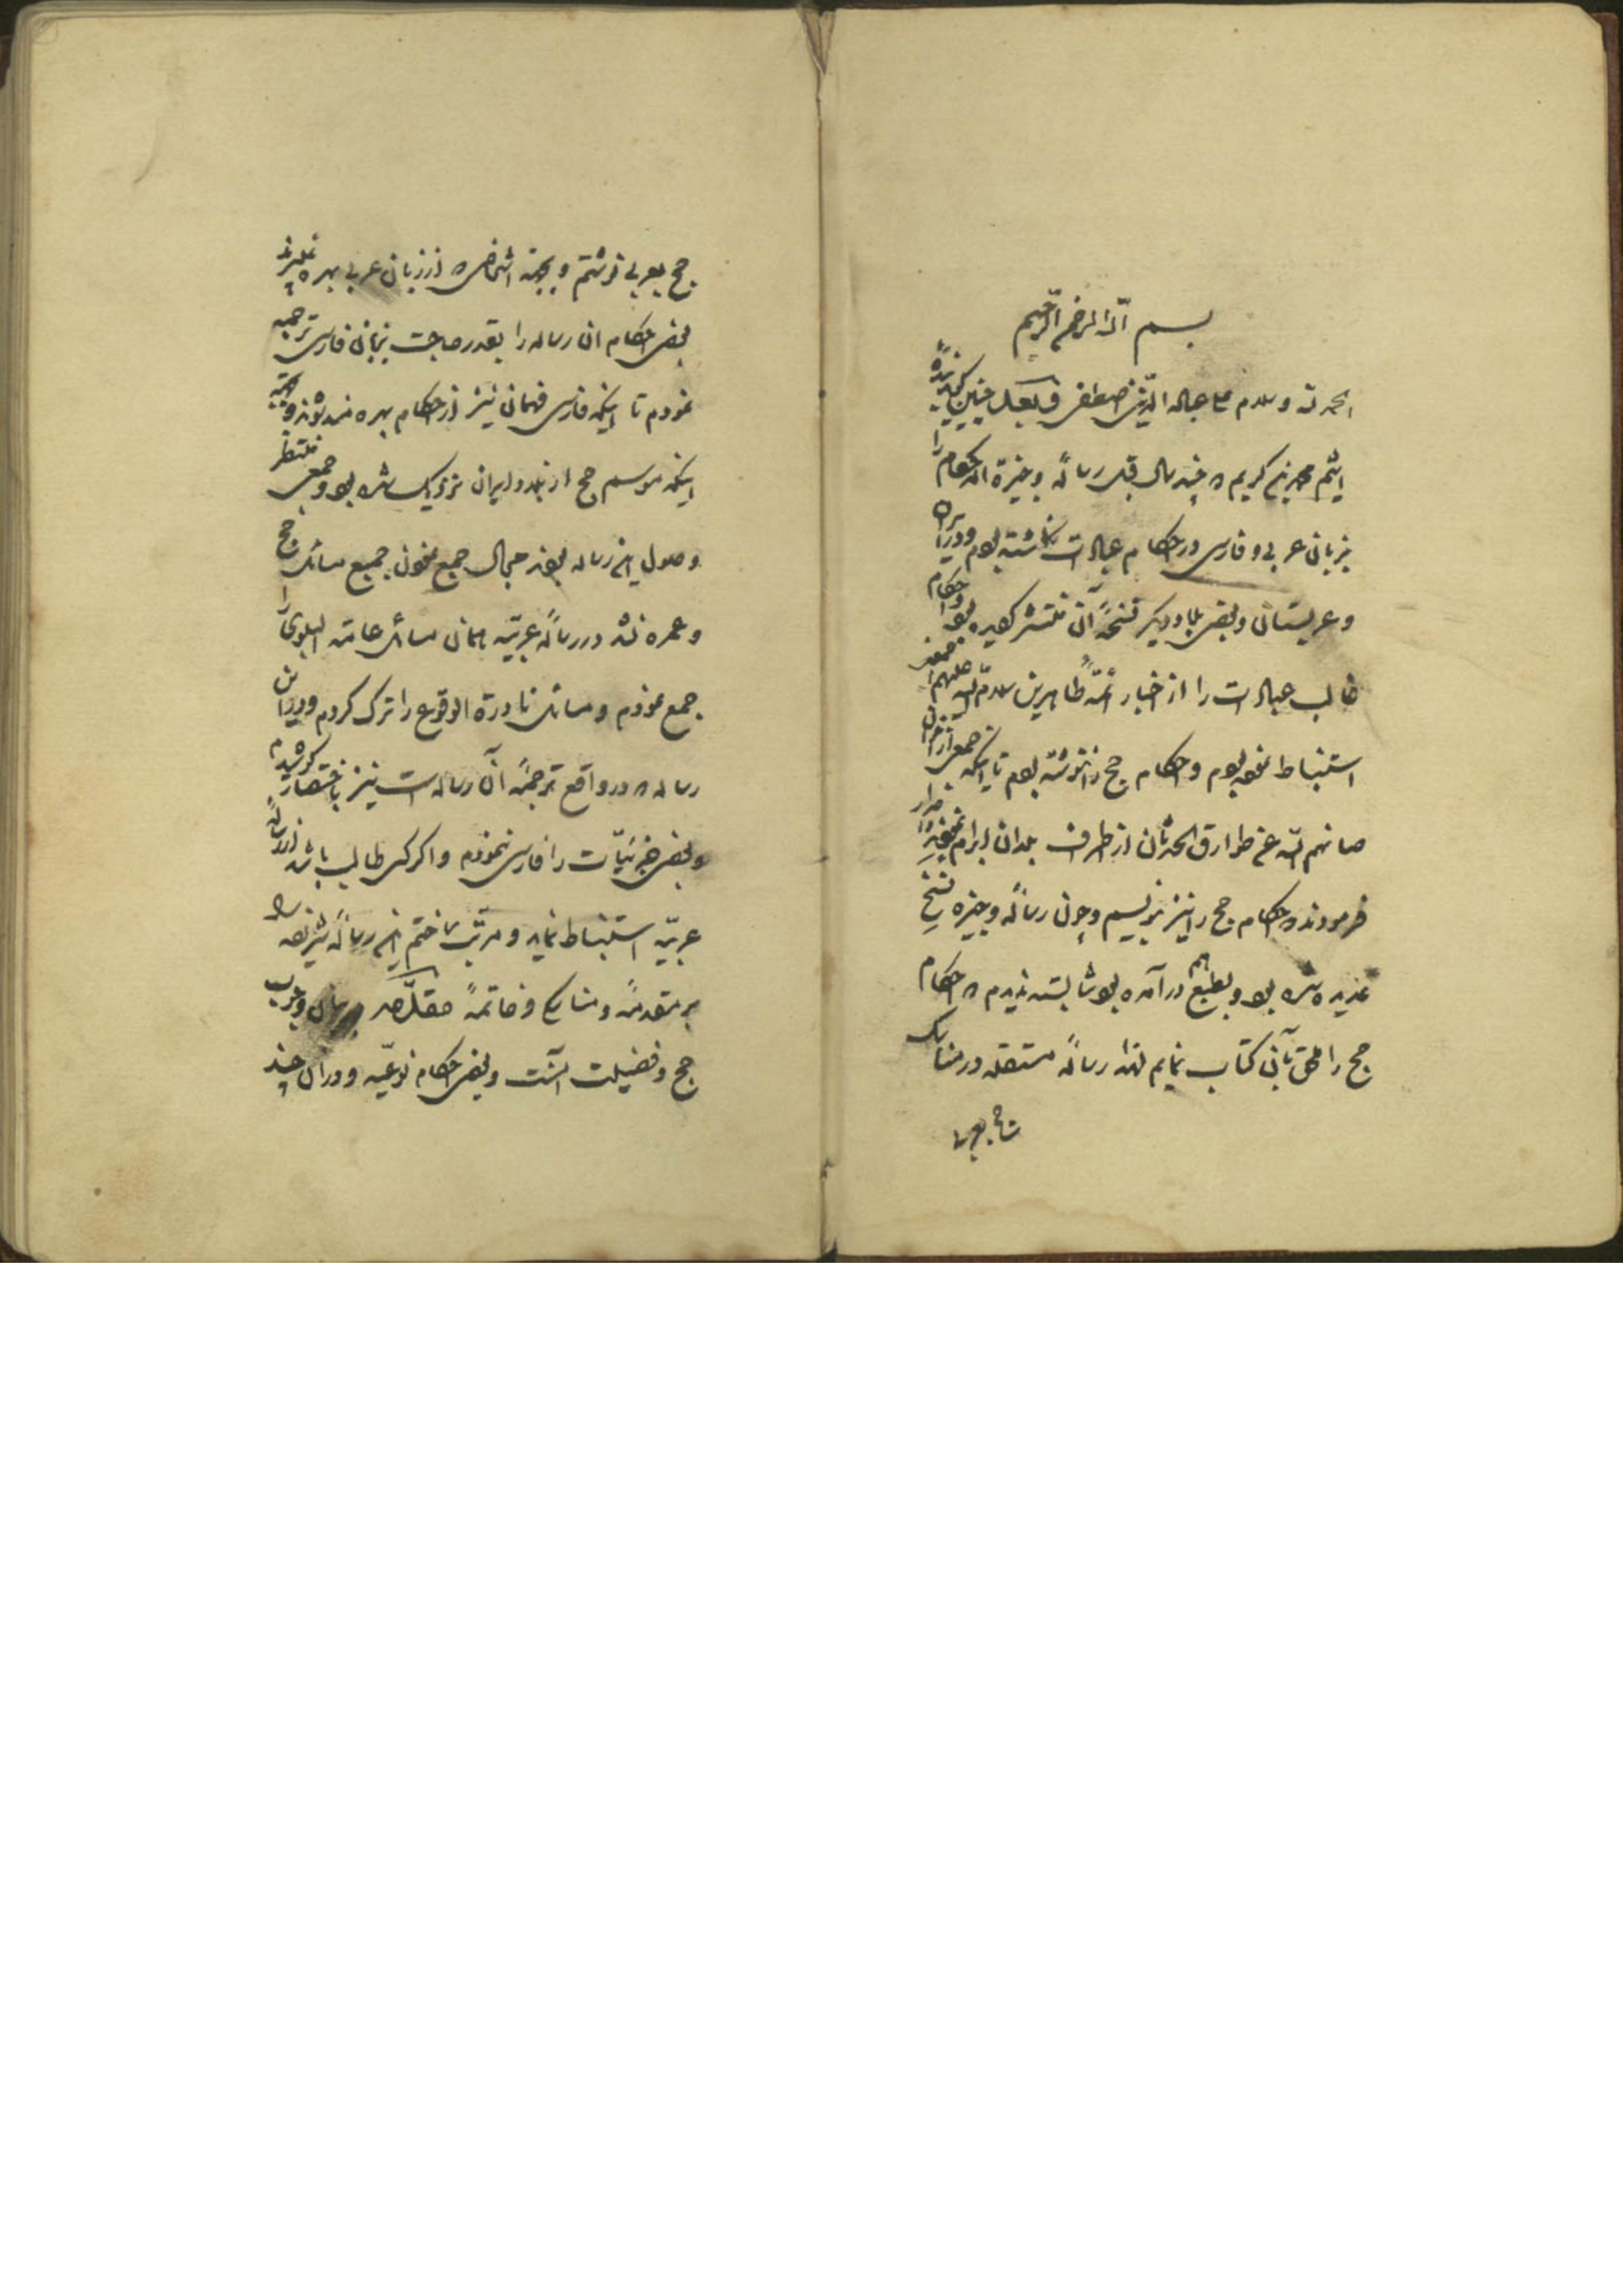 بسم الله الرحمن الرحیم
الحمد لله و سلام علی عباده الذین اصطفی و بعد چنین گوید بنده
اثیم محمد بن کریم که چند سال قبل رسالهٔ وجیزة الاحکام را
بزبان عربی و فارسی در احکام عبادات نگاشته بودم و در ایران
و عربستان و بعض بلاد دیگر نسخهٔ آن منتشر گردیده بود و احکام
غالب عبادات را از اخبار ائمهٔ طاهرین سلام الله علیهم اجمعین
استنباط نموده بودم و احکام حج را ننوشته بودم تا اینکه جمعی از اخوان
صانهم الله عن طوارق الحدثان از اطراف بلدان ابرام نمودند اصرار
فرمودند که احکام حج را نیز بنویسم و چون رسالهٔ وجیزه نسخ
عدیده شده بود و بطبع هم در آمده بود شایسته ندیدم که احکام
حج را ملحق بآن کتاب نمایم لهذا رسالهٔ مستقله در مناسک
حج بعربی
حج بعربی نوشتم و بجهة اشخاصی که از زبان عربی بهره نمیبرند
بعض احکام ان رساله را بقدر حاجت بزبان فارسی ترجمه
نمودم تا اینکه فارسی فهمان نیز از احکام بهره مند شوند و بجهة
اینکه موسم حج از بلاد ایران نزدیک شده بود و جمعی منتظر
وصول این رساله بودند مجال جمع نمودن جمیع مسائل حج
و عمره نشد در رسالهٔ عربیّه همان مسائل عامة البلوی را
جمع نمودم و مسائل نادرة الوقوع را ترک کردم و در این
رساله که در واقع ترجمهٔ آن رساله است نیز باختصار کوشیدم
و بعض جزئیّات را فارسی ننمودم و اگر کسی طالب باشد از رسالهٔ
عربیّه استنباط نماید و مرتّب ساختم این رسالهٔ شریفه را
بر مقدمهٔ و مناسک و خاتمهٔ مقدّمه در بیان وجوب
حج و فضیلت آنست و بعض احکام نوعیّه و در آن چند